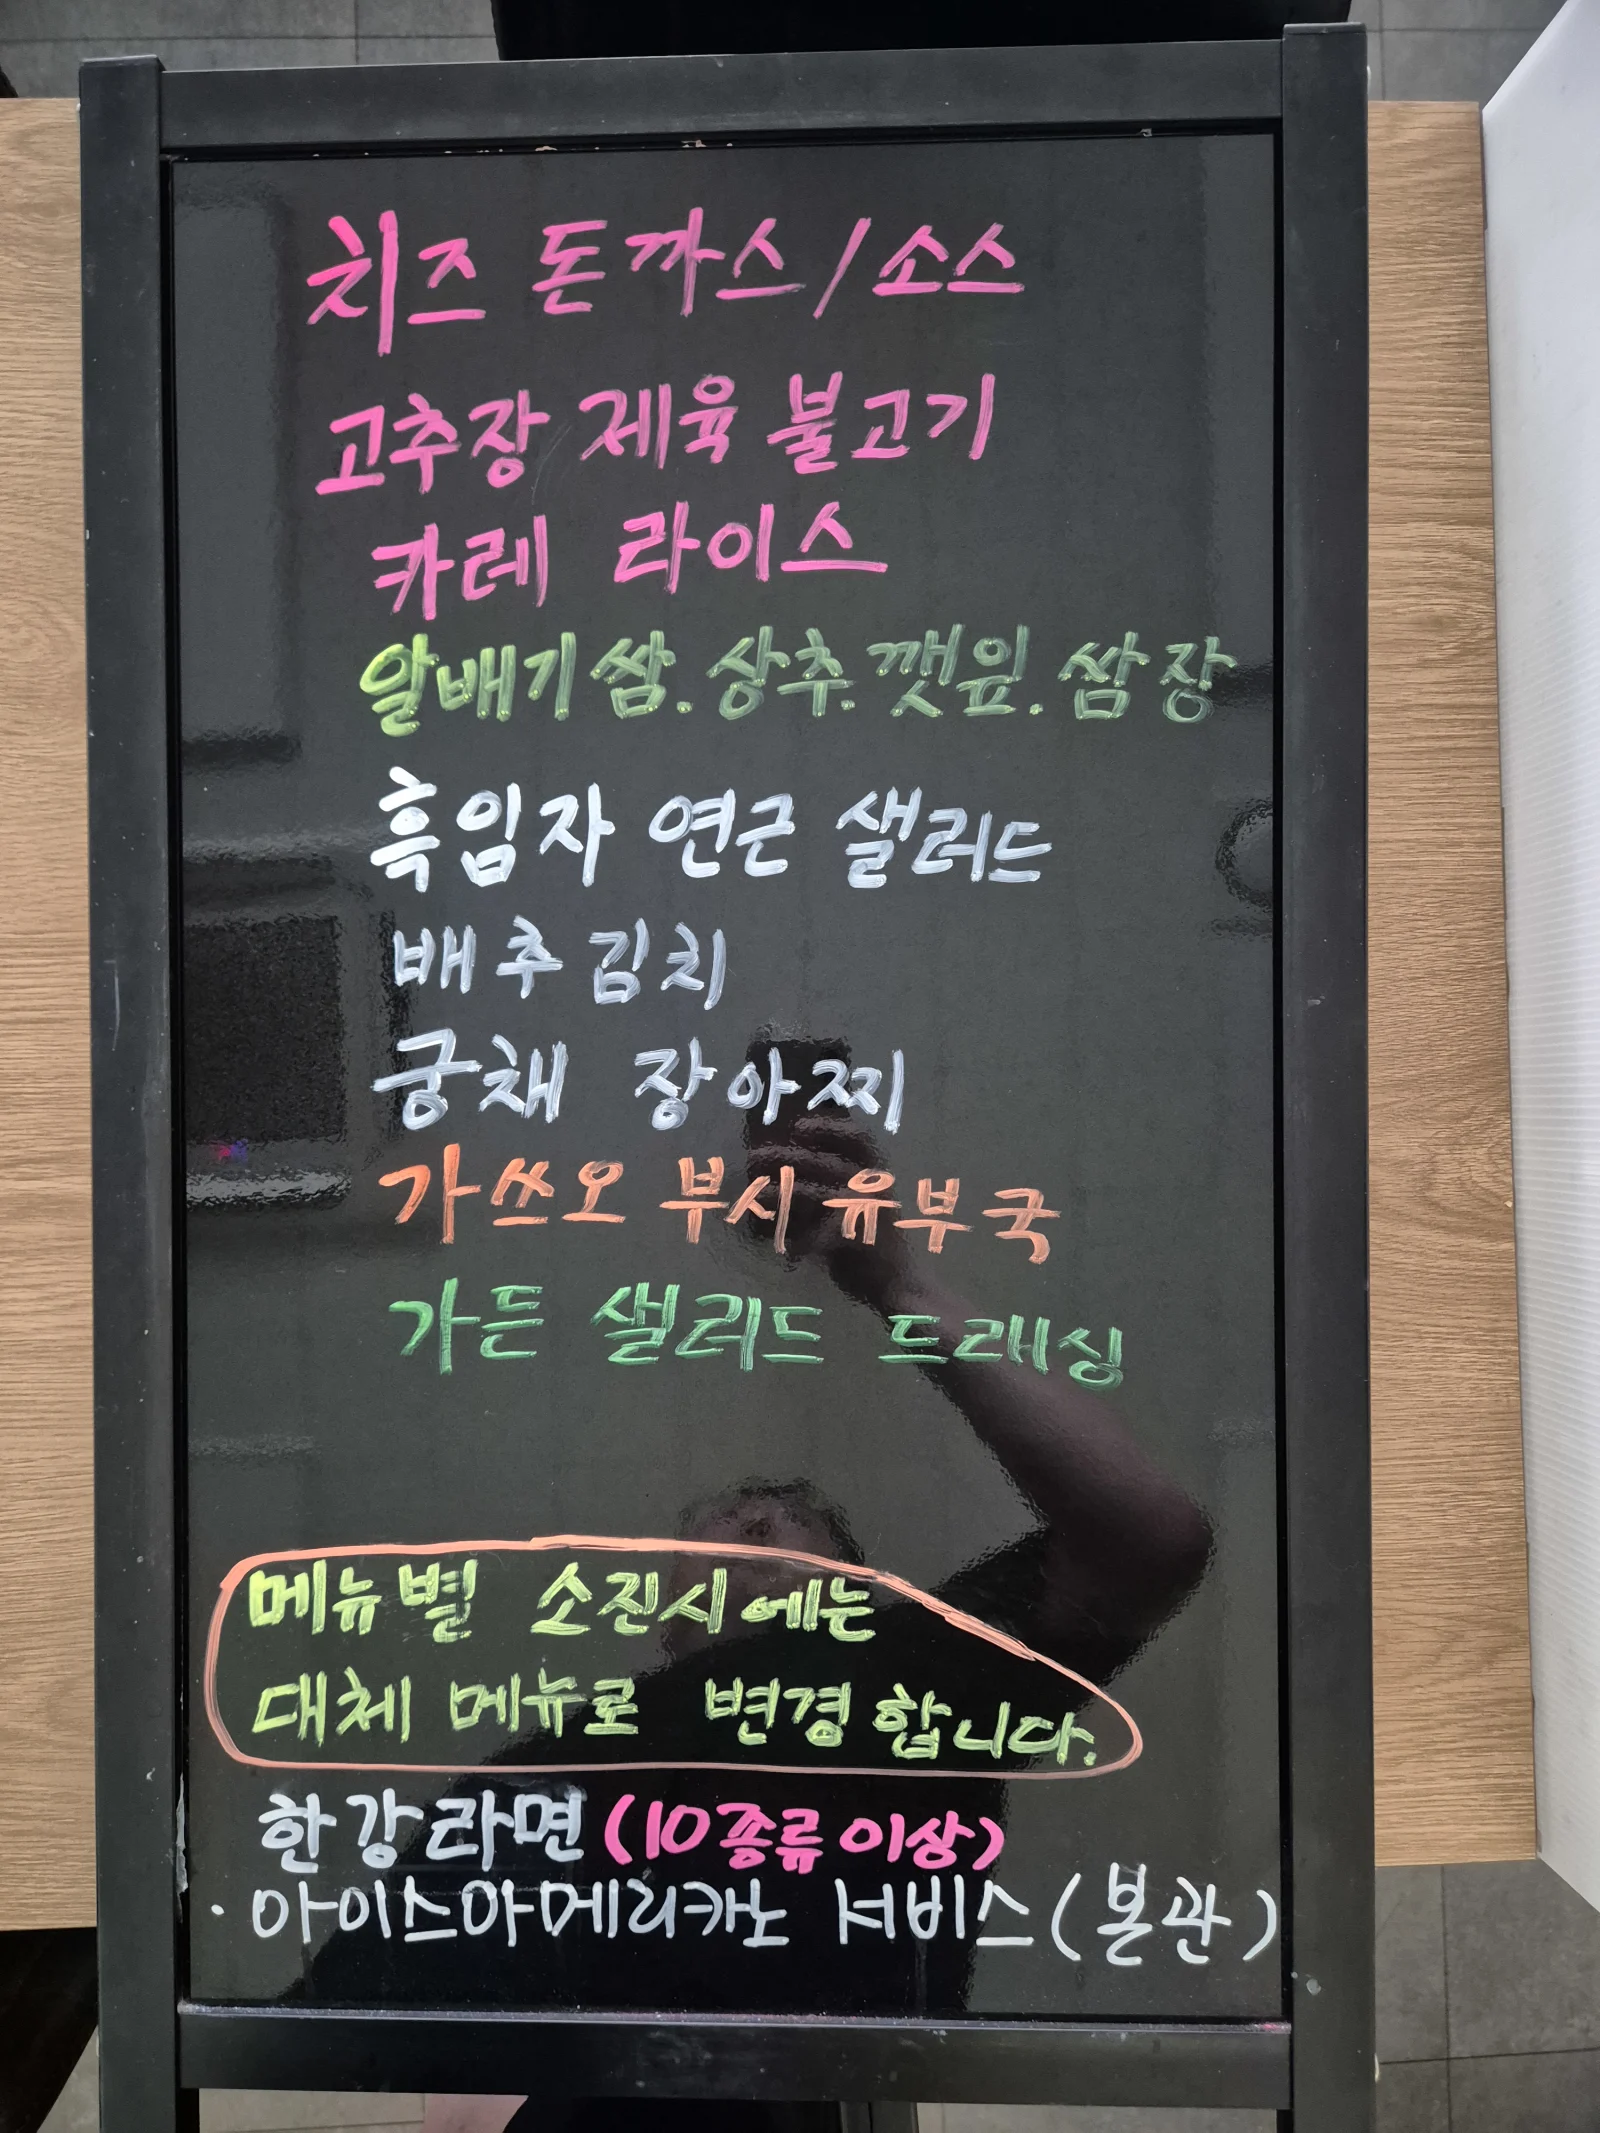 치즈 돈까스/소스
고추장 제육 불고기
카레 라이스
알배기쌈.상추.깻잎.쌈장
흑임자 연근 샐러드
배추김치
궁채 장아찌
가쓰오 부시 유부국
가든 샐러드 드래싱
메뉴별 소진시에는
대체 메뉴로 변경합니다.
한강라면(10종류이상)
·아이스아메리카노 서비스(본관)